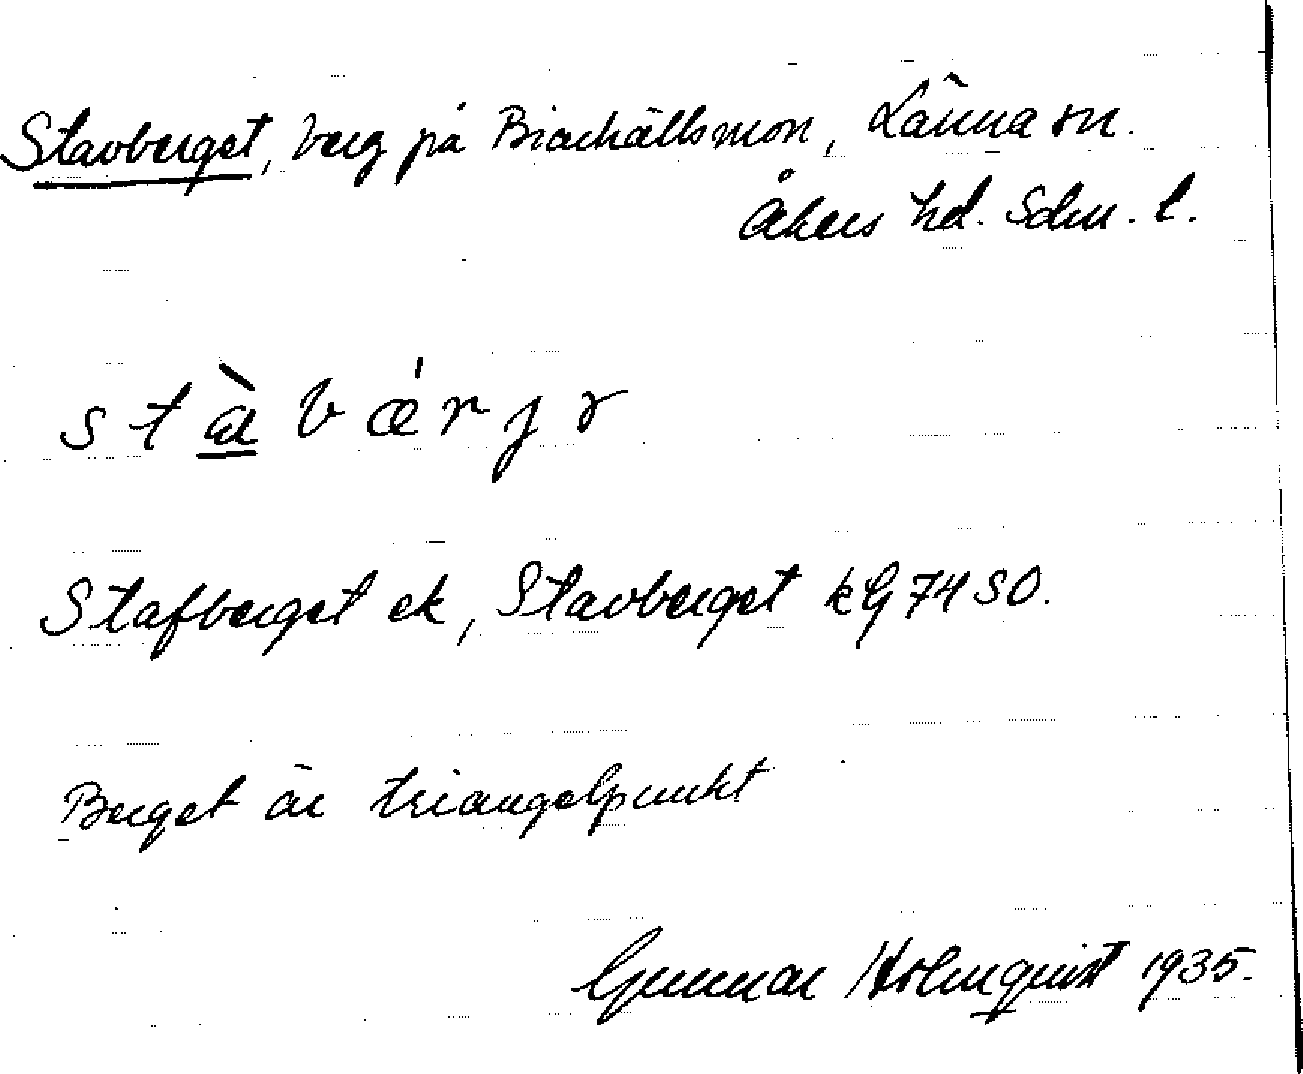 Stavberget, berg på Brachällsmon, Länna sn.
Åkers hd. Sdm. l.
s t à b ǽ r j ɤ
Stafberget ek, Stavberget kG 74 SO.
Berget är triangelpunkt
Gunnar Holmquist 1935.